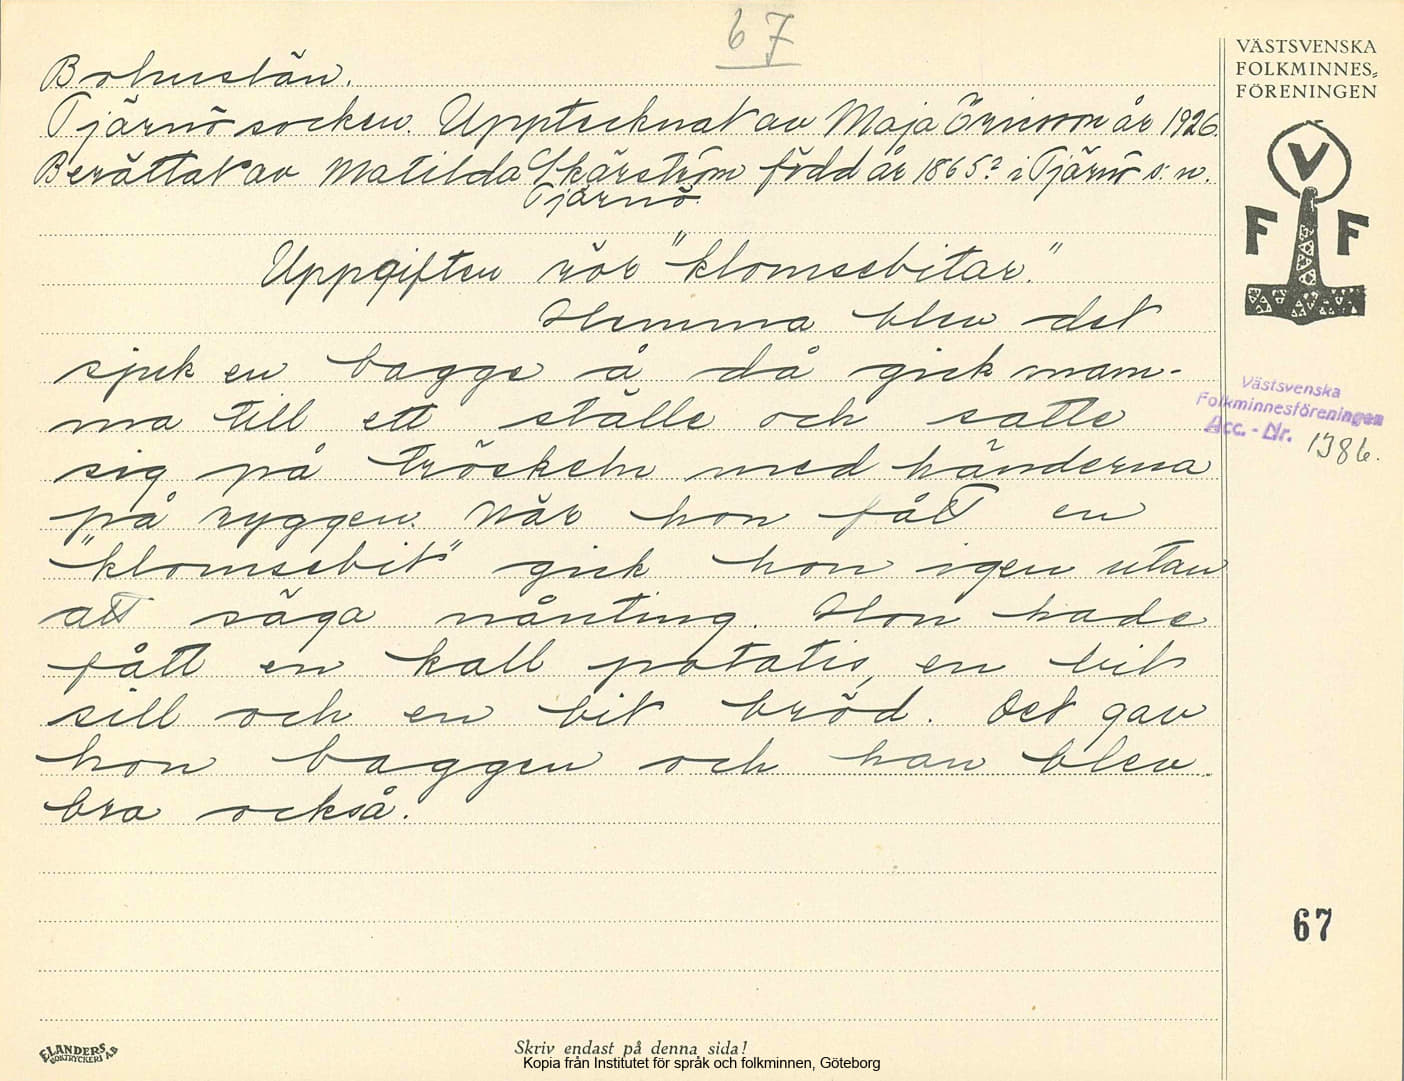 67
Bohuslän.
Tjärnö socken. Upptecknat av Maja Ericson år 1926.
Berättat av Matilda Skärström född år 1865? i Tjärnö s:n.
Tjärnö.
Uppgiften rör "klomsebitar."
Hemma blev det
sjuk en bagge å då gick mam-
ma till ett ställe och satte
sig på tröskeln med händerna
på ryggen. När hon fått en
"klomsebit" gick hon igen utan
att säga nånting. Hon hade
fått en kall potatis, en bit
sill och en bit bröd. Det gav
hon baggen och han blev
bra också.
VÄSTSVENSKA
FOLKMINNES-
FÖRENINGEN
V
F F
Västsvenska
Folkminnesföreningen
Acc. - Nr. 1386.
67
ELANDERS
BOKTRYCKERI A.B
Skriv endast på denna sida!
Kopia från Institutet för språk och folkminnen, Göteborg